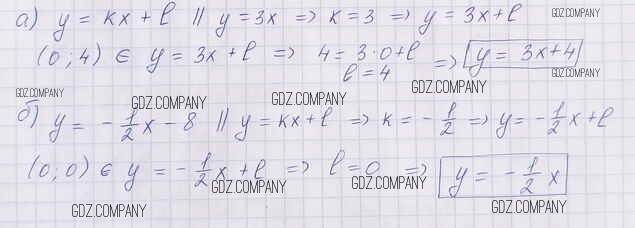 а) y = kx + l || y = 3x => k = 3 => y = 3x + l GDZ.COMPANY
(0; 4) ∈ y = 3x + l => 4 = 3·0 + l => y = 3x + 4
l = 4 GDZ.COMPANY GDZ.COMPANY
GDZ.COMPANY GDZ.COMPANY GDZ.COMPANY
б) y = -1/2 x - 8 || y = kx + l => k = -1/2 => y = -1/2 x + l
(0; 0) ∈ y = -1/2 x + l => l = 0 => y = -1/2 x
GDZ.COMPANY GDZ.COMPANY
GDZ.COMPANY GDZ.COMPANY